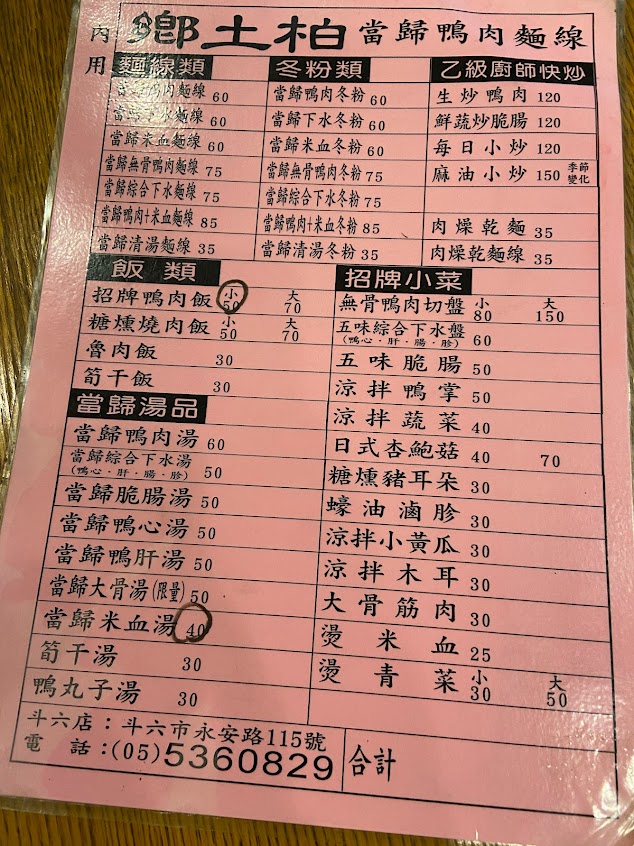 內用 鄉土柏 當歸鴨肉麵線
麵線類
當歸鴨肉麵線 60
當歸下水麵線 60
當歸米血麵線 60
當歸無骨鴨肉麵線 75
當歸綜合下水麵線 75
當歸鴨肉+米血麵線 85
當歸清湯麵線 35
冬粉類
當歸鴨肉冬粉 60
當歸下水冬粉 60
當歸米血冬粉 60
當歸無骨鴨肉冬粉 75
當歸綜合下水冬粉 75
當歸鴨肉+米血冬粉 85
當歸清湯冬粉 35
乙級廚師快炒
生炒鴨肉 120
鮮蔬炒脆腸 120
每日小炒 120
麻油小炒 150 季節變化
肉燥乾麵 35
肉燥乾麵線 35
飯類
招牌鴨肉飯 小50 大70
糖燻燒肉飯 小50 大70
魯肉飯 30
筍干飯 30
當歸湯品
當歸鴨肉湯 60
當歸綜合下水湯 50
(鴨心·肝·腸·胗)
當歸脆腸湯 50
當歸鴨心湯 50
當歸鴨肝湯 50
當歸大骨湯(限量) 50
當歸米血湯 40
筍干湯 30
鴨丸子湯 30
招牌小菜
無骨鴨肉切盤 小80 大150
五味綜合下水盤 60
(鴨心·肝·腸·胗)
五味脆腸 50
涼拌鴨掌 50
涼拌蔬菜 40
日式杏鮑菇 40 70
糖燻豬耳朵 30
蠔油滷胗 30
涼拌小黃瓜 30
涼拌木耳 30
大骨筋肉 30
燙米血 25
燙青菜 小30 大50
斗六店：斗六市永安路115號
電話：(05)5360829
合計